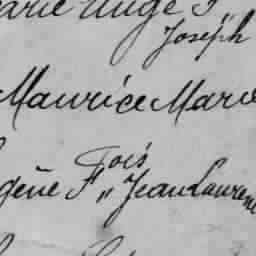 arie Ange F,,
Joseph
Maurice Marie
Fois
gène F,, Jean Laurent